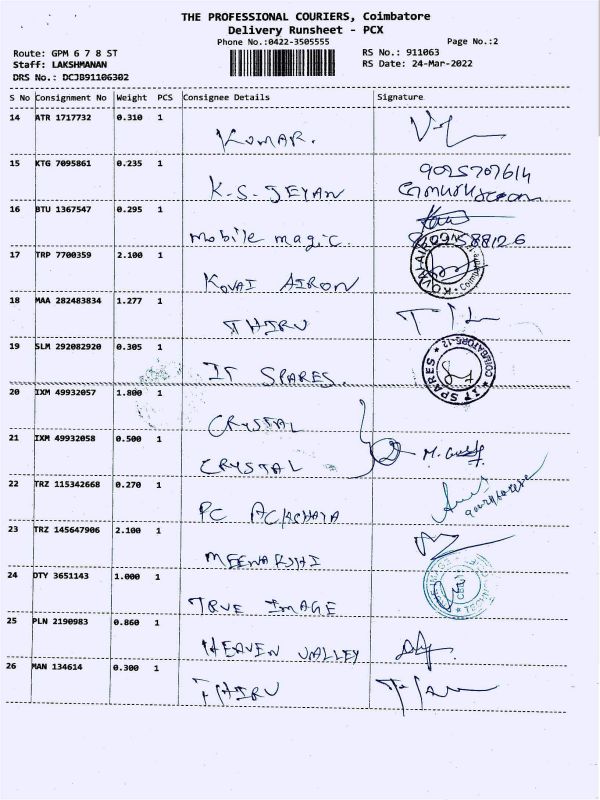 THE PROFESSIONAL COURIERS, Coimbatore
Delivery Runsheet - PCX
Phone No.:0422-3505555
Page No.:2
Route: GPM 6 7 8 ST
RS No.: 911063
Staff: LAKSHMANAN
RS Date: 24-Mar-2022
DRS No.: DCJB91106302
S No Consignment No Weight PCS Consignee Details Signature
14 ATR 1717732 0.310 1 KUMAR.
15 KTG 7095861 0.235 1 K.S.JEYAN
16 BTU 1367547 0.295 1 mobile magic.
17 TRP 7700359 2.100 1 KOVAI AIRON
18 MAA 282483834 1.277 1 THIRU
19 SLM 292082920 0.305 1 IT SPARES. IT SPARES * COIMBATORE-12 *
20 IXM 49932057 1.800 1 CRYSTAL
21 IXM 49932058 0.500 1 CRYSTAL
22 TRZ 115342668 0.270 1 PC ACHCHAYA
23 TRZ 145647906 2.100 1 MEENAKSHI
24 DTY 3651143 1.000 1 TRUE IMAGE
25 PLN 2190983 0.860 1 HEAVEN VALLEY
26 MAN 134614 0.300 1 THIRU